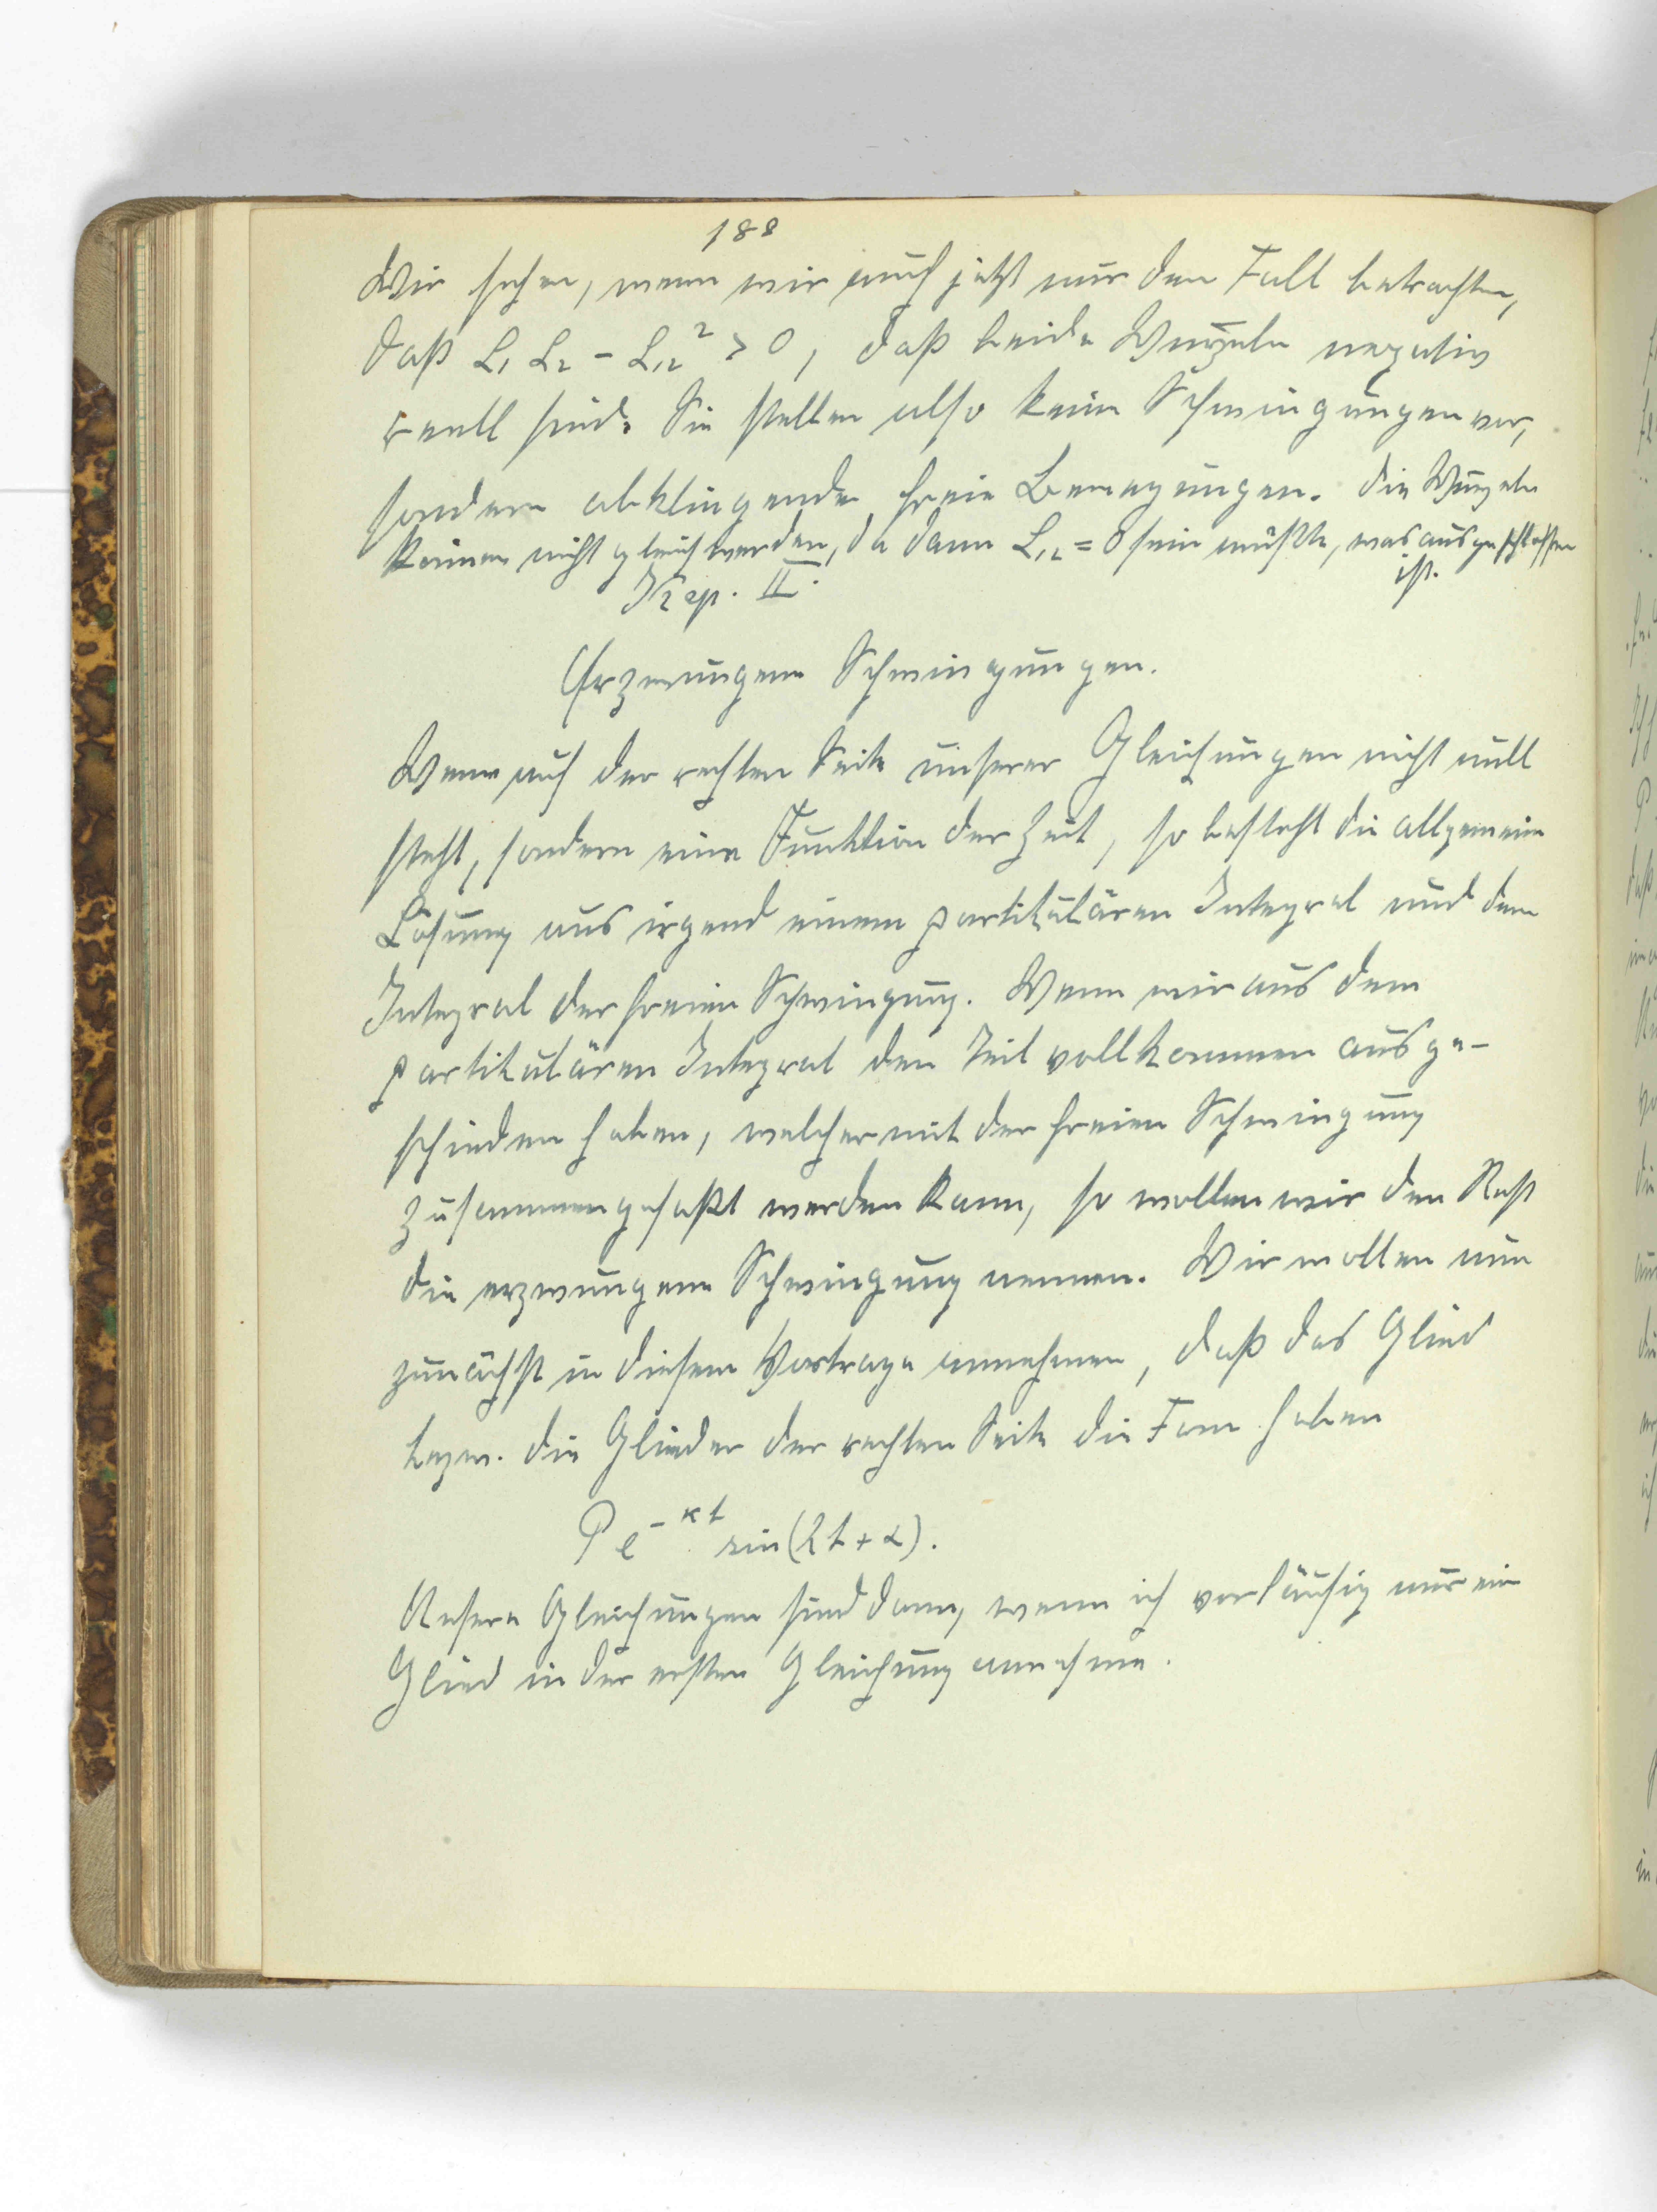 188
Wir sehen, wenn wir auch jetzt nur den Fall betrachten,
daß L₁ L₂ - L₁₂² > 0, daß beide Wurzeln negativ
reell sind. Sie stellen also keine Schwingungen vor,
sondern abklingende freie Bewegungen. Die Wurzeln
können nicht gleich werden, da dann L₁₂ = 0 sein müßte, was ausgeschlossen
ist.
Kap. II.
Erzwungene Schwingungen.
Wenn auf der rechten Seite unserer Gleichungen nicht null
steht, sondern eine Funktion der Zeit, so besteht die allgemeine
Lösung aus irgend einem partikulären Integral und dem
Integral der freien Schwingung. Wenn wir aus dem
partikulären Integral den Teil vollkommen ausge-
schieden haben, welcher mit der freien Schwingung
zusammengefaßt werden kann, so wollen wir den Rest
die erzwungene Schwingung nennen. Wir wollen nun
zunächst in diesem Vortrage annehmen, daß das Glied
bezw. die Glieder der rechten Seite die Form haben
P e^{-κt} sin(λt + α).
Unsere Gleichungen sind dann, wenn ich vorläufig nur ein
Glied in der ersten Gleichung annehme.